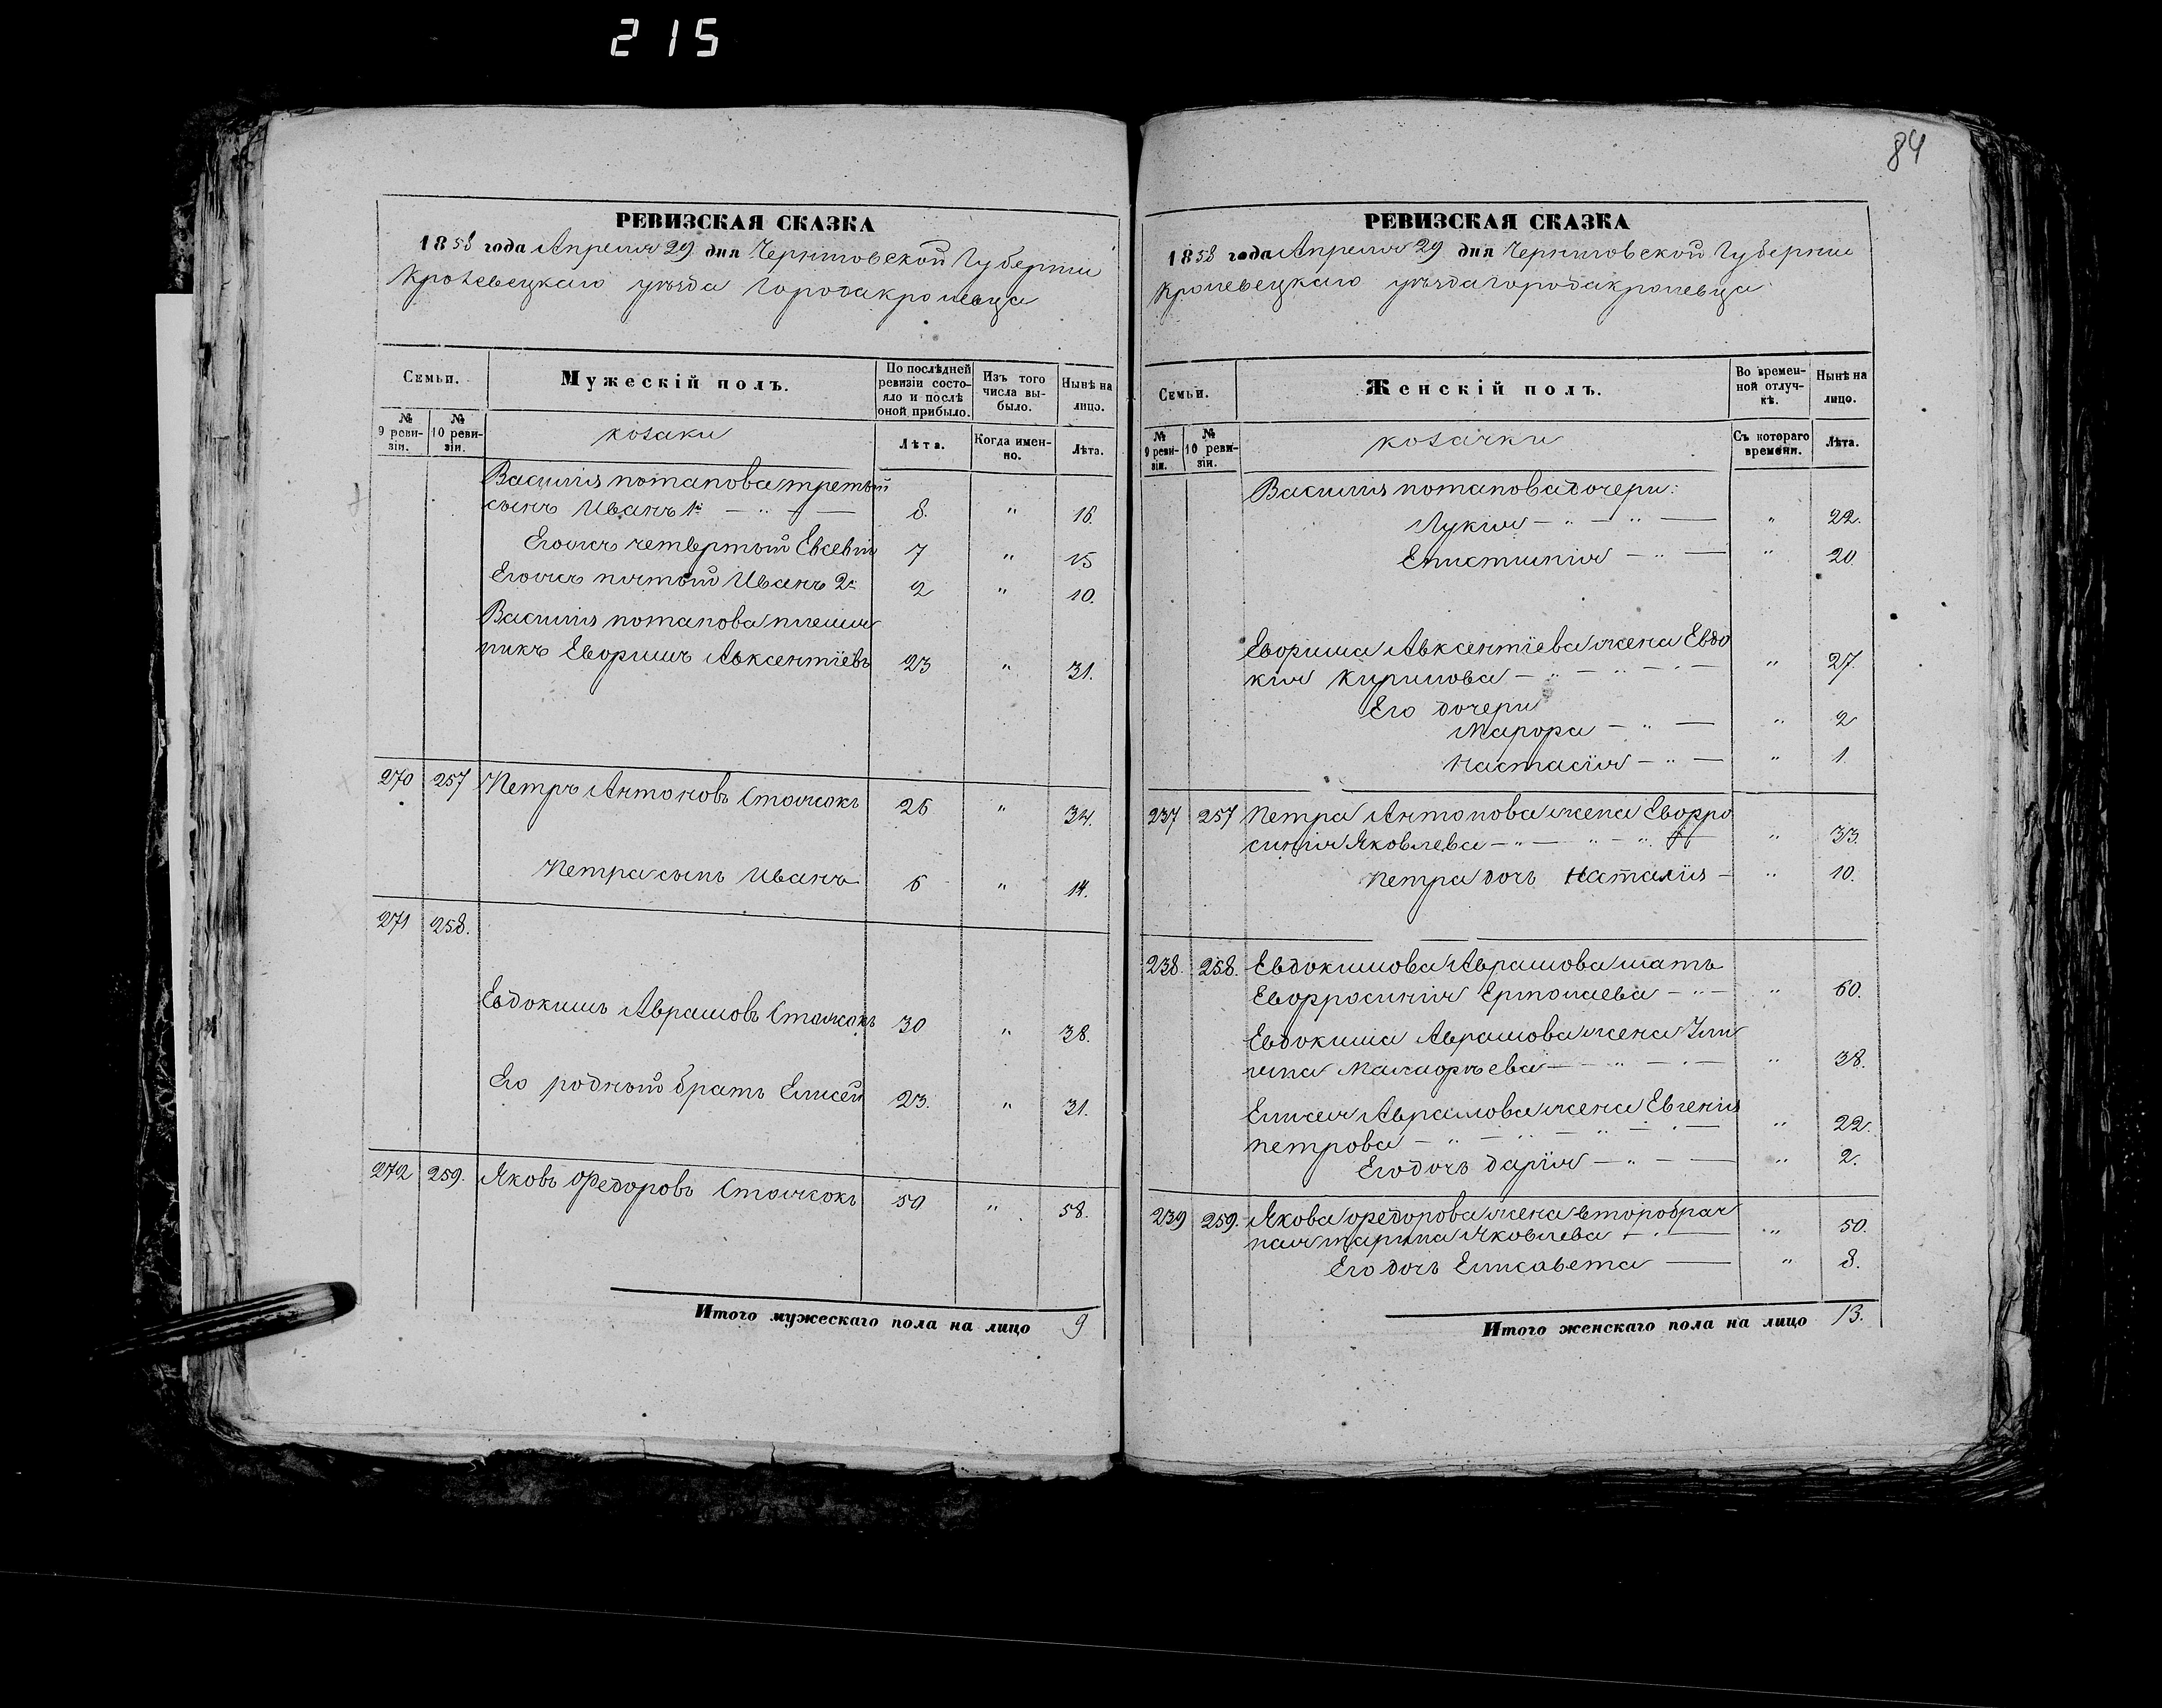 215
84
РЕВИЗСКАЯ СКАЗКА
1858 года Апреля 29 дня Черниговской Губернии
Кролевецкаго уѣзда города кролевца
Семьи.
Мужескій полъ.
По послѣдней ревизіи состояло и послѣ оной прибыло.
Изъ того числа выбыло.
Нынѣ на лицо.
№ 9 ревизіи.
№ 10 ревизіи.
козаки
Лѣта.
Когда именно.
Лѣта.
Василия потапова третий
сынъ Иванъ 1й — " — 8. " 16.
Его сынъ четвертый Евсевий 7 " 15
Его сынъ пятый Иванъ 2й 2 " 10.
Василия потапова племян
никъ Ефримъ Авксентіевъ 23 " 31.
270 257 Петръ Антоновъ 26 " 34.
Петра сынъ Иванъ 6 " 14.
271 258.
Евдокимъ Аврамовъ 30 " 38.
Его родный братъ Елисей 23. " 31.
272 259. Яковъ Федоровъ 50 " 58.
Итого мужескаго пола на лицо 9
РЕВИЗСКАЯ СКАЗКА
1858 года Апреля 29 дня Черниговской Губернии
Кролевецкаго уѣзда города кролевца
Семьи.
Женскій полъ.
Во временной отлучкѣ.
Нынѣ на лицо.
№ 9 ревизіи.
№ 10 ревизіи.
козачки
Съ котораго времени.
Лѣта.
Василия потапова дочери:
Лукия — " — " — " 22.
Епистимия — " — " 20.
Ефрима Авксентіева жена Евдо
кия Кирилова — " — " — " 27.
Его дочери
Марфа — " — " 2
Настасія — " — " 1.
237 257 Петра Антонова жена Евфро
синия Яковлева — " — " — " 33.
Петра дочь Наталия — " 10.
238. 258. Евдокимова Аврамова мать
Евфросиния Ермолаева — " — " 60.
Евдокима Аврамова жена Ули
яна — " — " 38.
Елисея Аврамова жена Евгения
петрова — " — " — " 22.
Его дочь Дарія — " — " 2.
239 259. Якова федорова жена второбрач
ная марина Яковлева — " 50.
Его дочь Елисавета — " 8.
Итого женскаго пола на лицо 13.